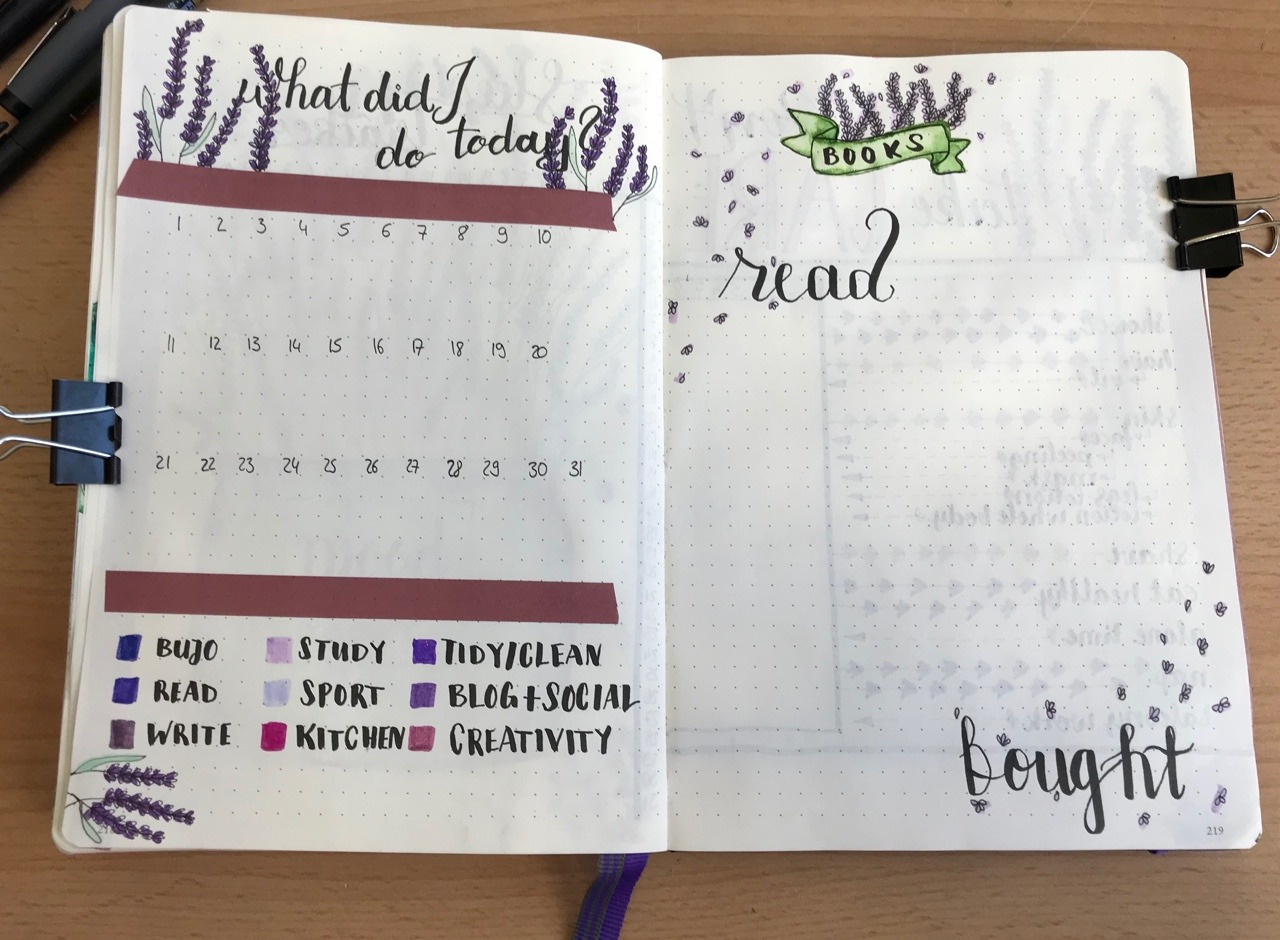 What did I
do today?
1 2 3 4 5 6 7 8 9 10
11 12 13 14 15 16 17 18 19 20
21 22 23 24 25 26 27 28 29 30 31
BUJO STUDY TIDY/CLEAN
READ SPORT BLOG+SOCIAL
WRITE KITCHEN CREATIVITY
BOOKS
read
Bought
219